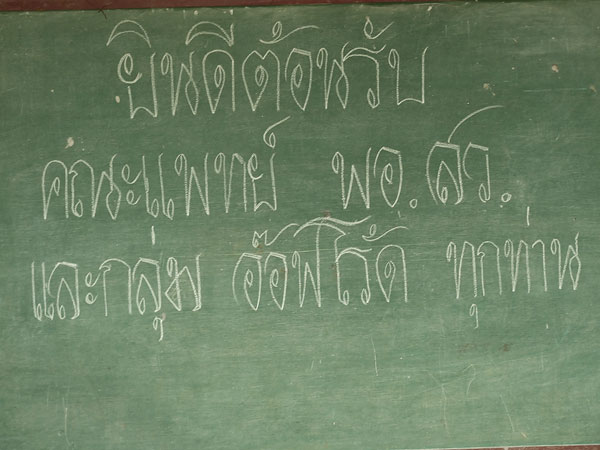 ยินดีต้อนรับ
คณะแพทย์ พอ.สว.
และกลุ่ม อ๊อฟโรัด ทุกท่าน